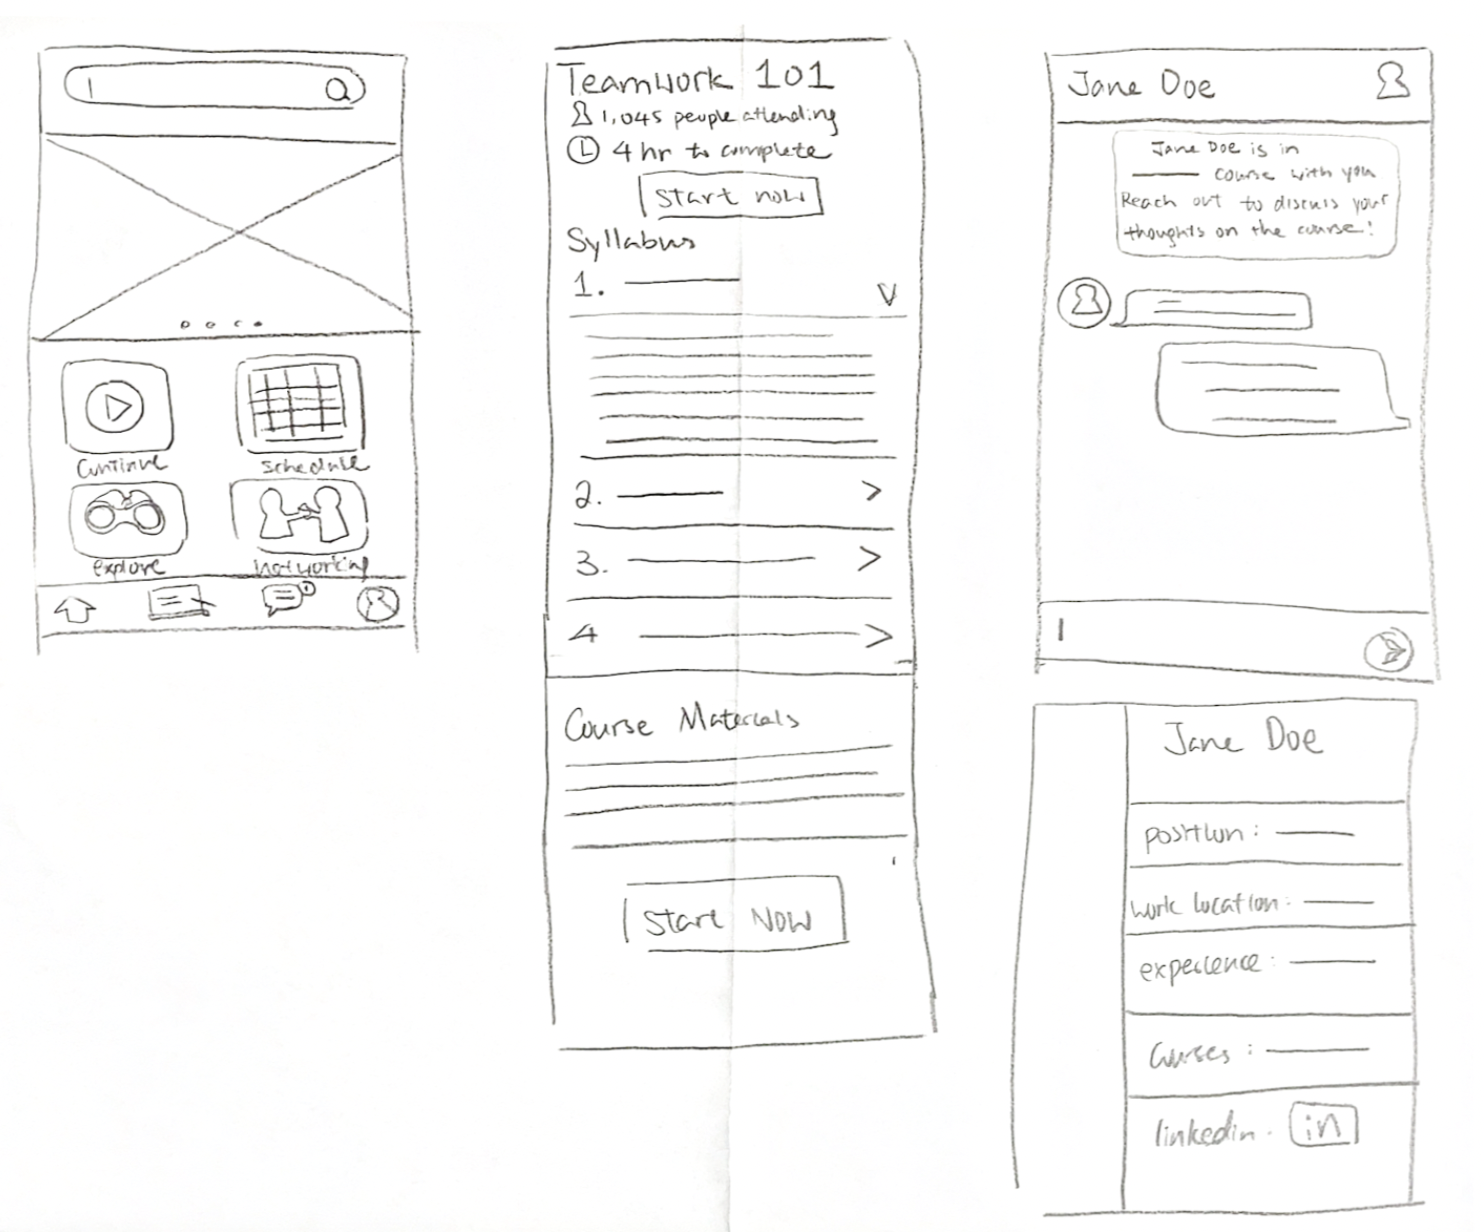 Continue
Schedule
explore
Networking
Teamwork 101
1,045 people attending
4 hr to complete
Start now
Syllabus
1.
2.
3.
4
Course Materials
Start Now
Jane Doe
Jane Doe is in
course with you
Reach out to discuss your
thoughts on the course!
Jane Doe
position:
work location:
experience:
Courses:
linkedin. in